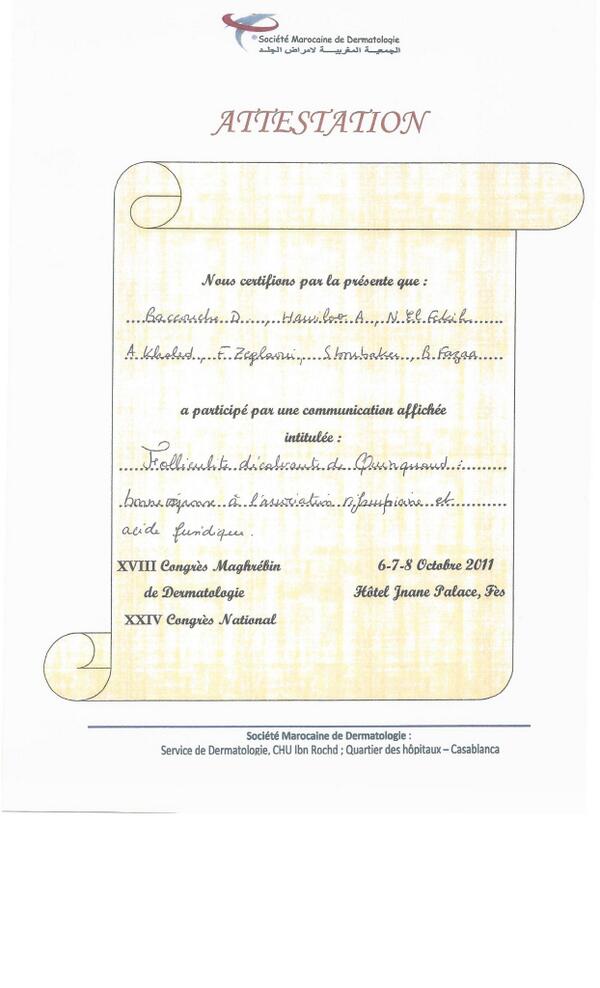 Société Marocaine de Dermatologie
الجمعية المغربية لامراض الجلد
ATTESTATION
Nous certifions par la présente que :
Baccouche D., A., N. El Fekih
A. Khaled, F. Zeglaoui, B. Fazaa
a participé par une communication affichée
intitulée :
Folliculite décalvante de Quinquaud :
bonne réponse à l'association rifampicine et
acide fusidique.
XVIII Congrès Maghrébin
de Dermatologie
XXIV Congrès National
6-7-8 Octobre 2011
Hôtel Jnane Palace, Fès
Société Marocaine de Dermatologie :
Service de Dermatologie, CHU Ibn Rochd ; Quartier des hôpitaux – Casablanca